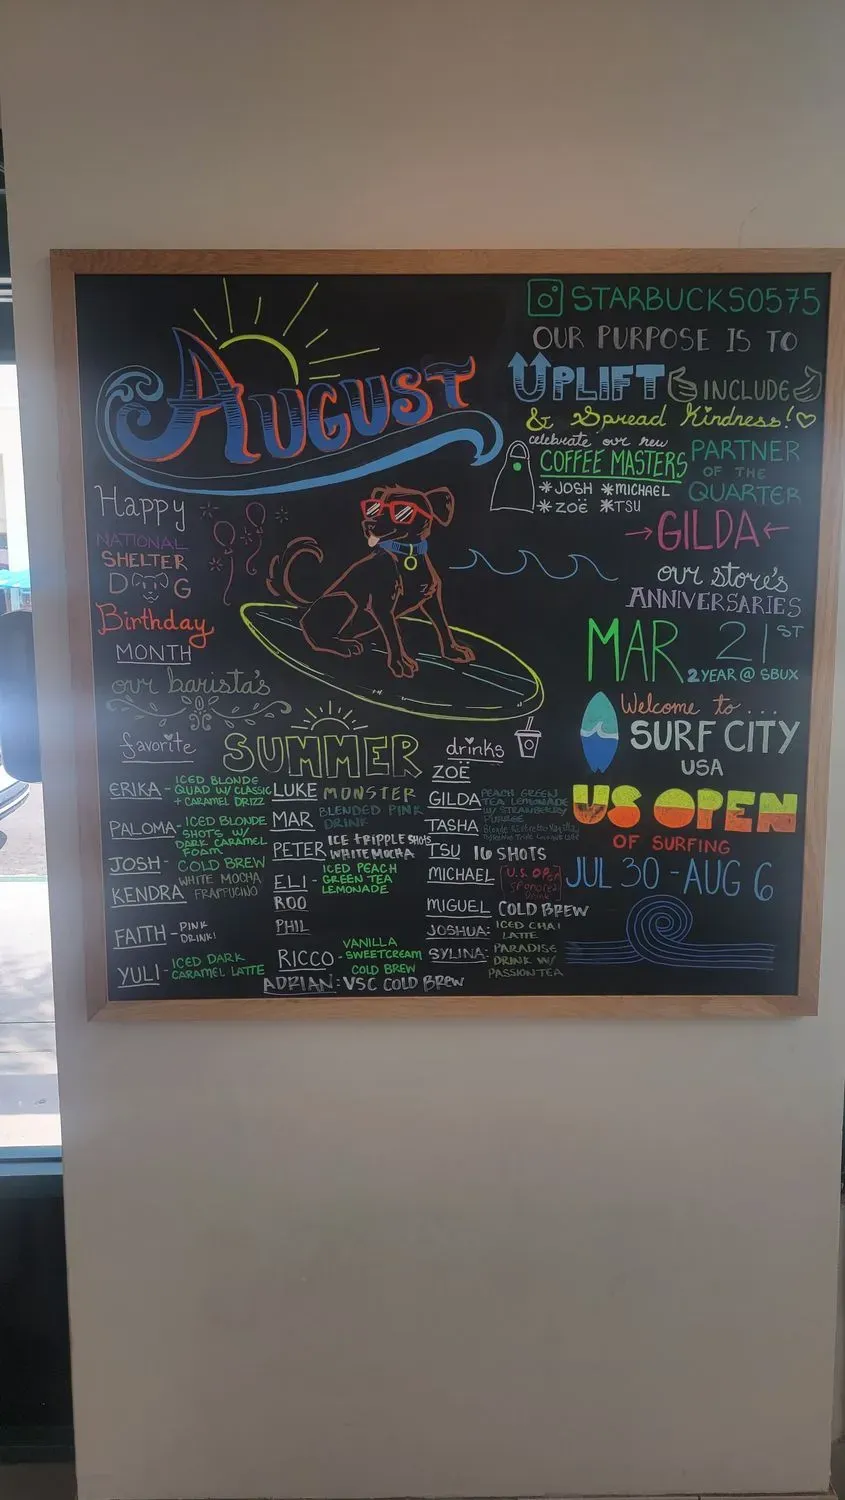 AUGUST
Happy
NATIONAL
SHELTER
DOG
Birthday
MONTH
our barista's
favorite SUMMER drinks
ERIKA - ICED BLONDE
QUAD W/ CLASSIC
+ CARAMEL DRIZZ
PALOMA - ICED BLONDE
SHOTS W/
DARK CARAMEL
FOAM
JOSH - COLD BREW
KENDRA WHITE MOCHA
FRAPPUCINO
FAITH - PINK
DRINK!
YULI - ICED DARK
CARAMEL LATTE
LUKE MONSTER
MAR BLENDED PINK
DRINK
PETER ICE TRIPPLE SHOTS
WHITE MOCHA
ELI - ICED PEACH
GREEN TEA
LEMONADE
ROO
PHIL
RICCO - VANILLA
SWEETCREAM
COLD BREW
ADRIAN: VSC COLD BREW
ZOË
GILDA PEACH GREEN
TEA LEMONADE
W/ STRAWBERRY
PUREE
TASHA Blonde Ristretto Vanilla
TSU 16 SHOTS
MICHAEL U.S. OPEN
SPONORED
MIGUEL COLD BREW
JOSHUA: ICED CHAI
LATTE
SYLINA: PARADISE
DRINK W/
PASSION TEA
STARBUCKS0575
OUR PURPOSE IS TO
UPLIFT INCLUDE
& Spread Kindness!
celebrate our new
COFFEE MASTERS
*JOSH *MICHAEL
*ZOË *TSU
PARTNER
OF THE
QUARTER
→GILDA←
our store's
ANNIVERSARIES
MAR 21ST
2 YEAR @ SBUX
Welcome to...
SURF CITY
USA
US OPEN
OF SURFING
JUL 30 - AUG 6